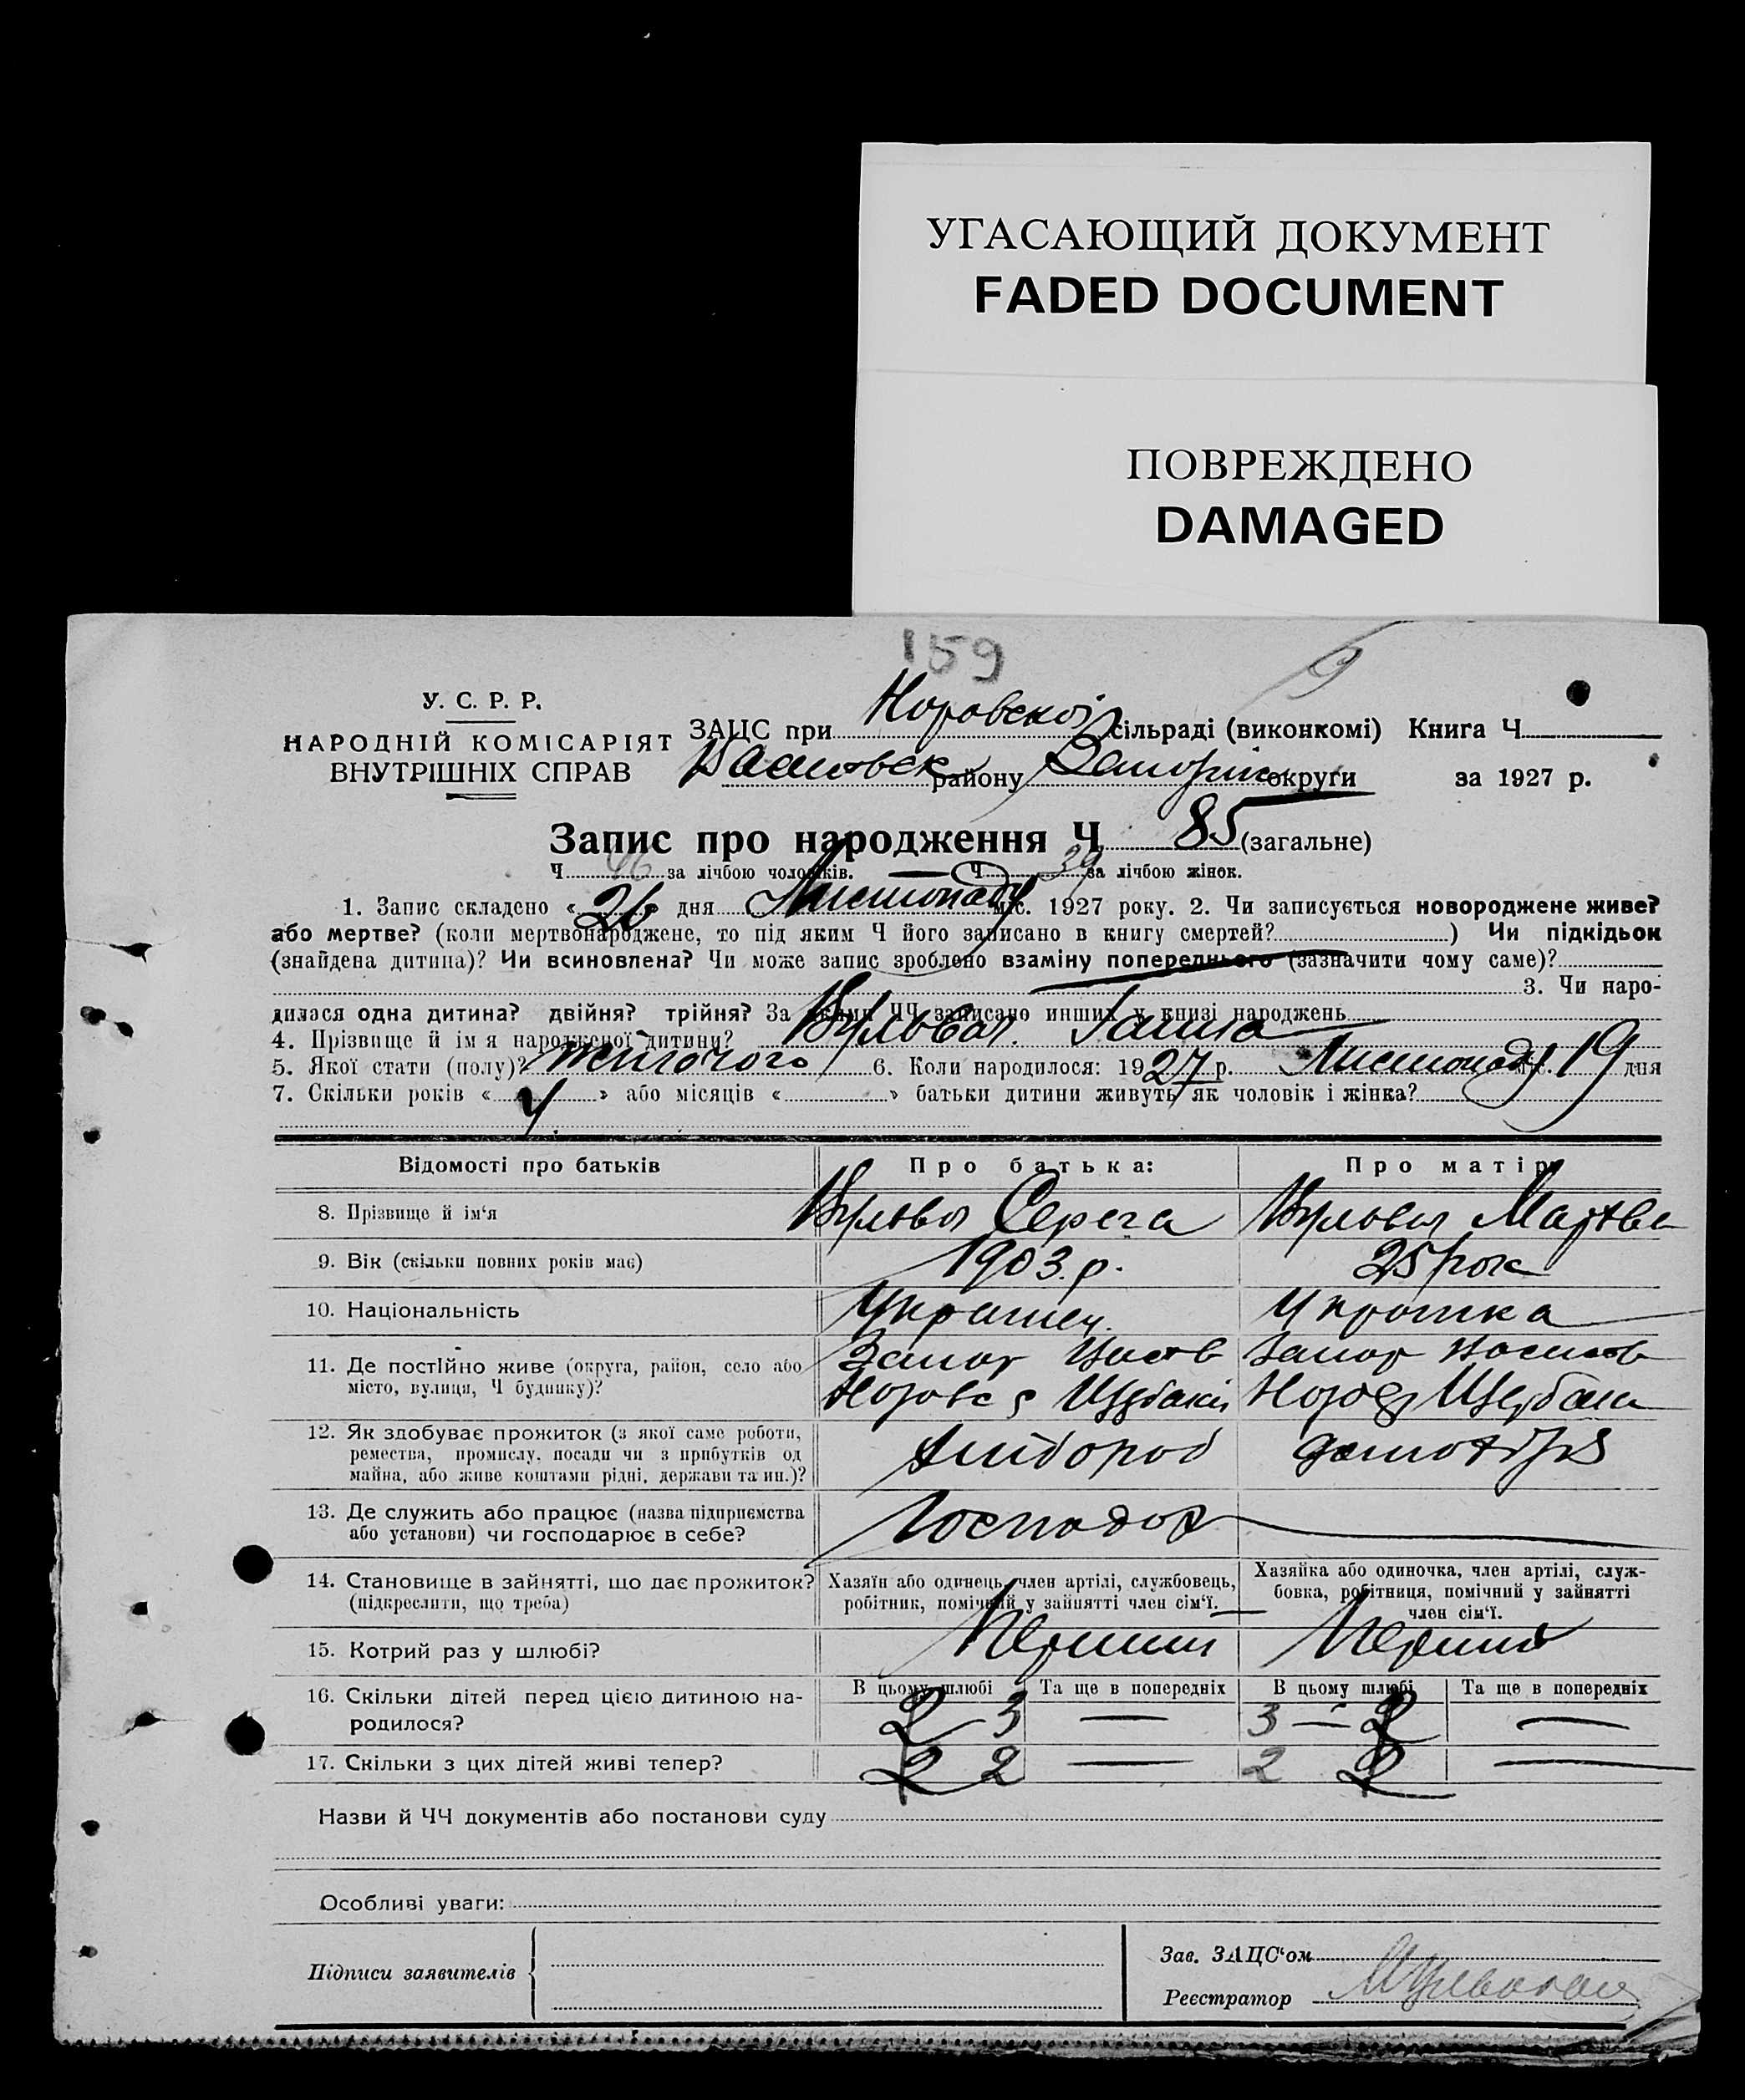 УГАСАЮЩИЙ ДОКУМЕНТ
FADED DOCUMENT
ПОВРЕЖДЕНО
DAMAGED
159
У. С. Р. Р.
НАРОДНІЙ КОМІСАРІЯТ
ВНУТРІШНІХ СПРАВ
ЗАЦС при сільраді (виконкомі) Книга Ч
району округи за 1927 р.
Запис про народження Ч 85 (загальне)
Ч 46 за лічбою чоловіків. Ч 39 за лічбою жінок.
1. Запис складено « 26 дня Листопаду міс. 1927 року. 2. Чи записується новороджене живе?
або мертве? (коли мертвонароджене, то під яким Ч його записано в книгу смертей? ) Чи підкідьок
(знайдена дитина)? Чи всиновлена? Чи може запис зроблено взаміну попереднього (зазначити чому саме)?
3. Чи наро-
дилася одна дитина? двійня? трійня? За якими ЧЧ записано инших у книзі народжень
4. Прізвище й ім я народженої дитини? Ганна
5. Якої стати (полу)? жиночого 6. Коли народилося: 1927 р. Листопаду міс. 19 дня
7. Скільки років « 4 » або місяців « » батьки дитини живуть як чоловік і жінка?
Відомості про батьків Про батька: Про матір
8. Прізвище й ім‘я Серега
9. Вік (скільки повних років має) 1903 р. 25 рок
10. Національність Украинец
11. Де постійно живе (округа, район, село або
місто, вулиця, Ч будинку)?
12. Як здобуває прожиток (з якої саме роботи,
ремества, промислу, посади чи з прибутків од
майна, або живе коштами рідні, держави та ин.)?
13. Де служить або працює (назва підприємства
або установи) чи господарює в себе?
14. Становище в зайнятті, що дає прожиток?
(підкреслити, що треба)
Хазяїн або одинець, член артілі, службовець,
робітник, помічний у зайнятті член сім‘ї.
Хазяйка або одиночка, член артілі, служ-
бовка, робітниця, помічний у зайнятті
член сім‘ї.
15. Котрий раз у шлюбі?
16. Скільки дітей перед цією дитиною на-
родилося?
В цьому шлюбі Та ще в попередніх В цьому шлюбі Та ще в попередніх
2 3 — 3 — 2 —
17. Скільки з цих дітей живі тепер? 2 2 — 2 2 —
Назви й ЧЧ документів або постанови суду
Особливі уваги:
Підписи заявителів
Зав. ЗАЦС‘ом
Реєстратор